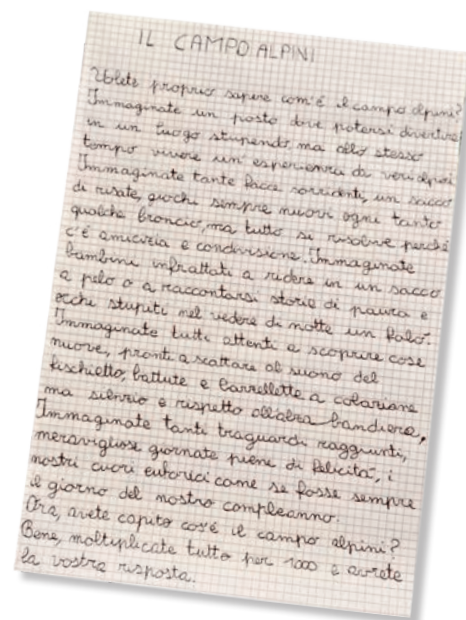 IL CAMPO ALPINI
Volete proprio sapere com'è il campo alpini?
Immaginate un posto dove potersi divertire
in un luogo stupendo, ma allo stesso
tempo vivere un'esperienza da veri alpini
Immaginate tante facce sorridenti, un sacco
di risate, giochi sempre nuovi ogni tanto
qualche broncio, ma tutto si risolve perché
c'è amicizia e condivisione. Immaginate
bambini infrattati a ridere in un sacco
a pelo o a raccontarsi storie di paura e
occhi stupiti nel vedere di notte un falò.
Immaginate tutti attenti a scoprire cose
nuove, pronti a scattare al suono del
fischietto, battute e barzellette a colazione
ma silenzio e rispetto all'alza bandiera,
Immaginate tanti traguardi raggiunti,
meravigliose giornate piene di felicità, i
nostri cuori euforici come se fosse sempre
il giorno del nostro compleanno.
Ora, avete capito cos'è il campo alpini?
Bene, moltiplicate tutto per 1000 e avrete
la vostra risposta.